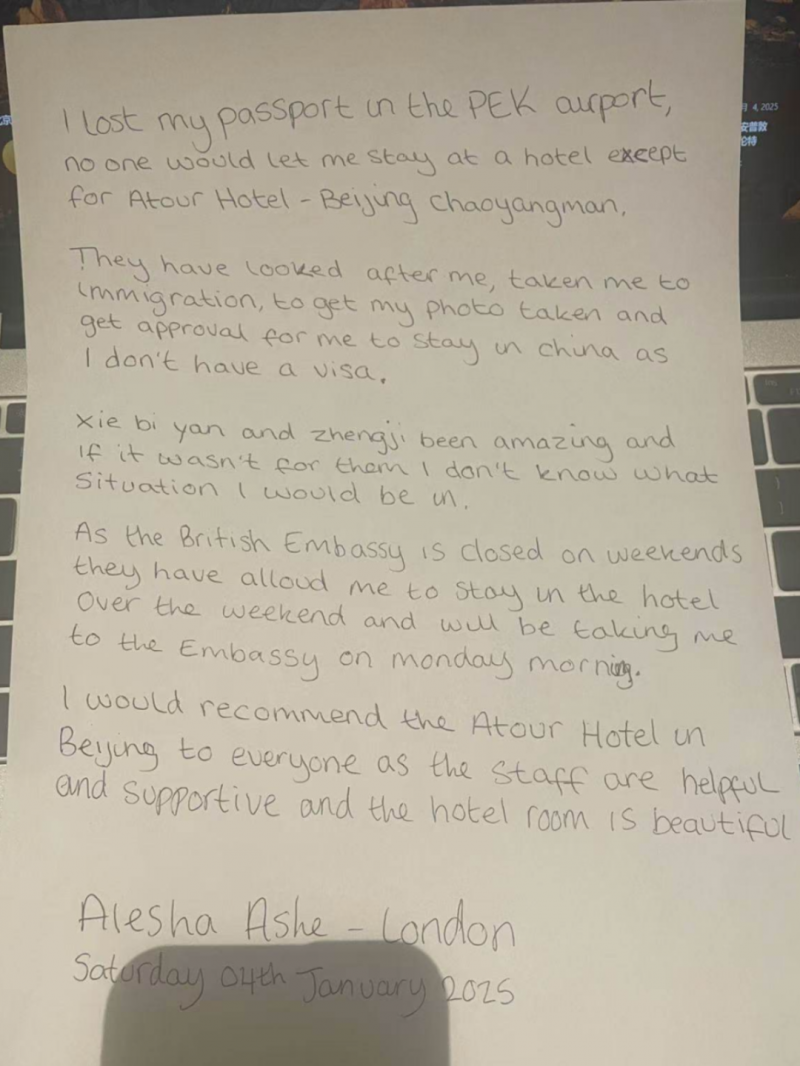 I lost my passport in the PEK airport,
no one would let me stay at a hotel except
for Atour Hotel - Beijing Chaoyangman.
They have looked after me, taken me to
immigration, to get my photo taken and
get approval for me to stay in china as
I don't have a visa.
Xie bi yan and zhengji been amazing and
if it wasn't for them I don't know what
situation I would be in.
As the British Embassy is closed on weekends
they have alloud me to stay in the hotel
over the weekend and will be taking me
to the Embassy on monday morning.
I would recommend the Atour Hotel in
Beijing to everyone as the staff are helpful
and supportive and the hotel room is beautiful
Alesha Ashe - London
Saturday 04th January 2025
月 4, 2025
安普敦
伦特